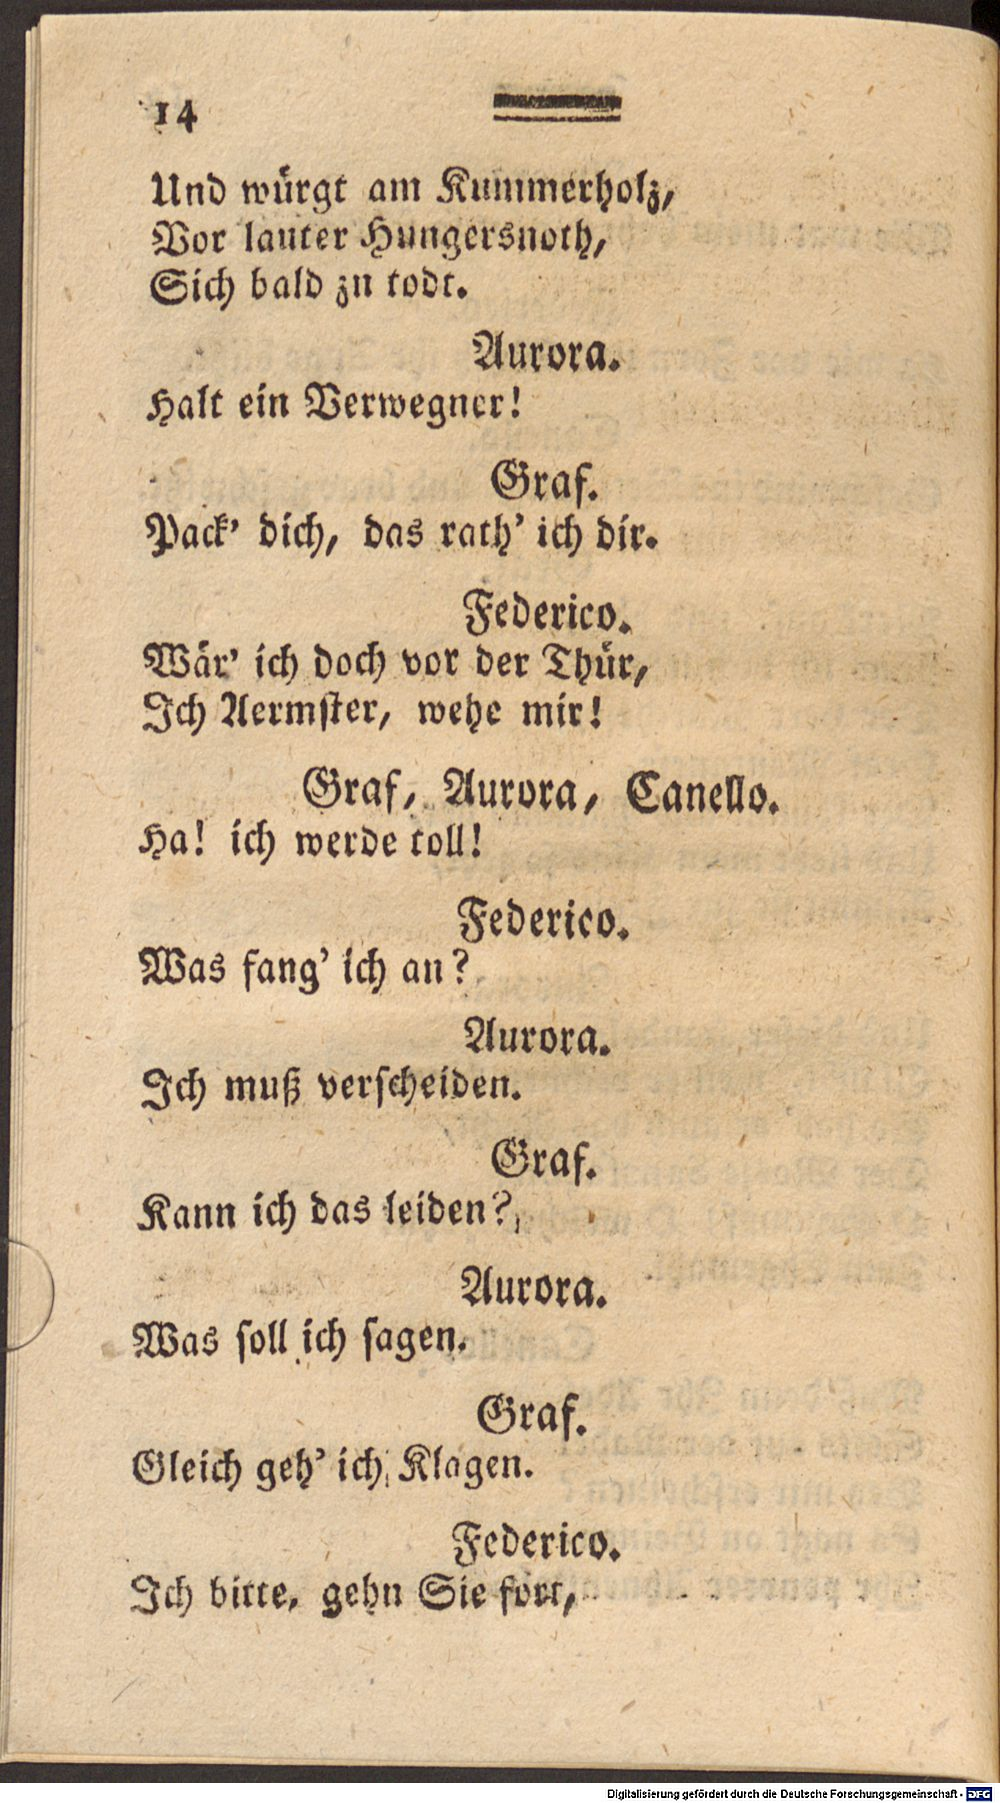 14
Und würgt am Kummerholz,
Vor lauter Hungersnoth,
Sich bald zu todt.
Aurora.
Halt ein Verwegner!
Graf.
Pack' dich, das rath' ich dir.
Federico.
Wär' ich doch vor der Thür,
Ich Aermster, wehe mir!
Graf, Aurora, Canello.
Ha! ich werde toll!
Federico.
Was fang' ich an?
Aurora.
Ich muß verscheiden.
Graf.
Kann ich das leiden?
Aurora.
Was soll ich sagen.
Graf.
Gleich geh' ich Klagen.
Federico.
Ich bitte, gehn Sie fort,
Digitalisierung gefördert durch die Deutsche Forschungsgemeinschaft - DFG